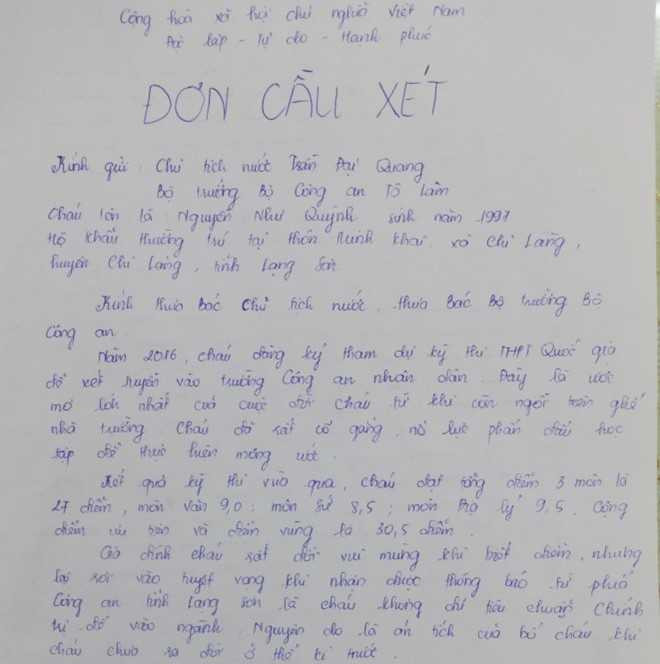 Cộng hoà xã hội chủ nghĩa Việt Nam
Độc lập - Tự do - Hạnh phúc
ĐƠN CẦU XÉT
Kính gửi : Chủ tịch nước Trần Đại Quang
Bộ trưởng Bộ Công an Tô Lâm
Cháu tên là Nguyễn Như Quỳnh sinh năm 1997
Hộ khẩu thường trú tại thôn Minh Khai, xã Chi Lăng,
huyện Chi Lăng, tỉnh Lạng Sơn
Kính thưa Bác Chủ tịch nước, thưa Bác Bộ trưởng Bộ
Công an
Năm 2016, cháu đăng ký tham dự kỳ thi THPT Quốc gia
để xét tuyển vào trường Công an nhân dân. Đây là ước
mơ lớn nhất của cuộc đời cháu từ khi còn ngồi trên ghế
nhà trường. Cháu đã rất cố gắng, nỗ lực phấn đấu học
tập để thực hiện mong ước.
Kết quả kỳ thi vừa qua, cháu đạt tổng điểm 3 môn là
27 điểm, môn văn 9,0 ; môn sử 8,5 ; môn Địa lý 9,5. Cộng
điểm ưu tiên và điểm vùng là 30,5 điểm.
Gia đình cháu rất đỗi vui mừng khi biết điểm, nhưng
lại rơi vào tuyệt vọng khi nhận được thông báo từ phía
Công an tỉnh Lạng Sơn là cháu không đủ tiêu chuẩn Chính
trị để vào ngành. Nguyên do là án tích của bố cháu khi
cháu chưa ra đời ở thế kỉ trước.